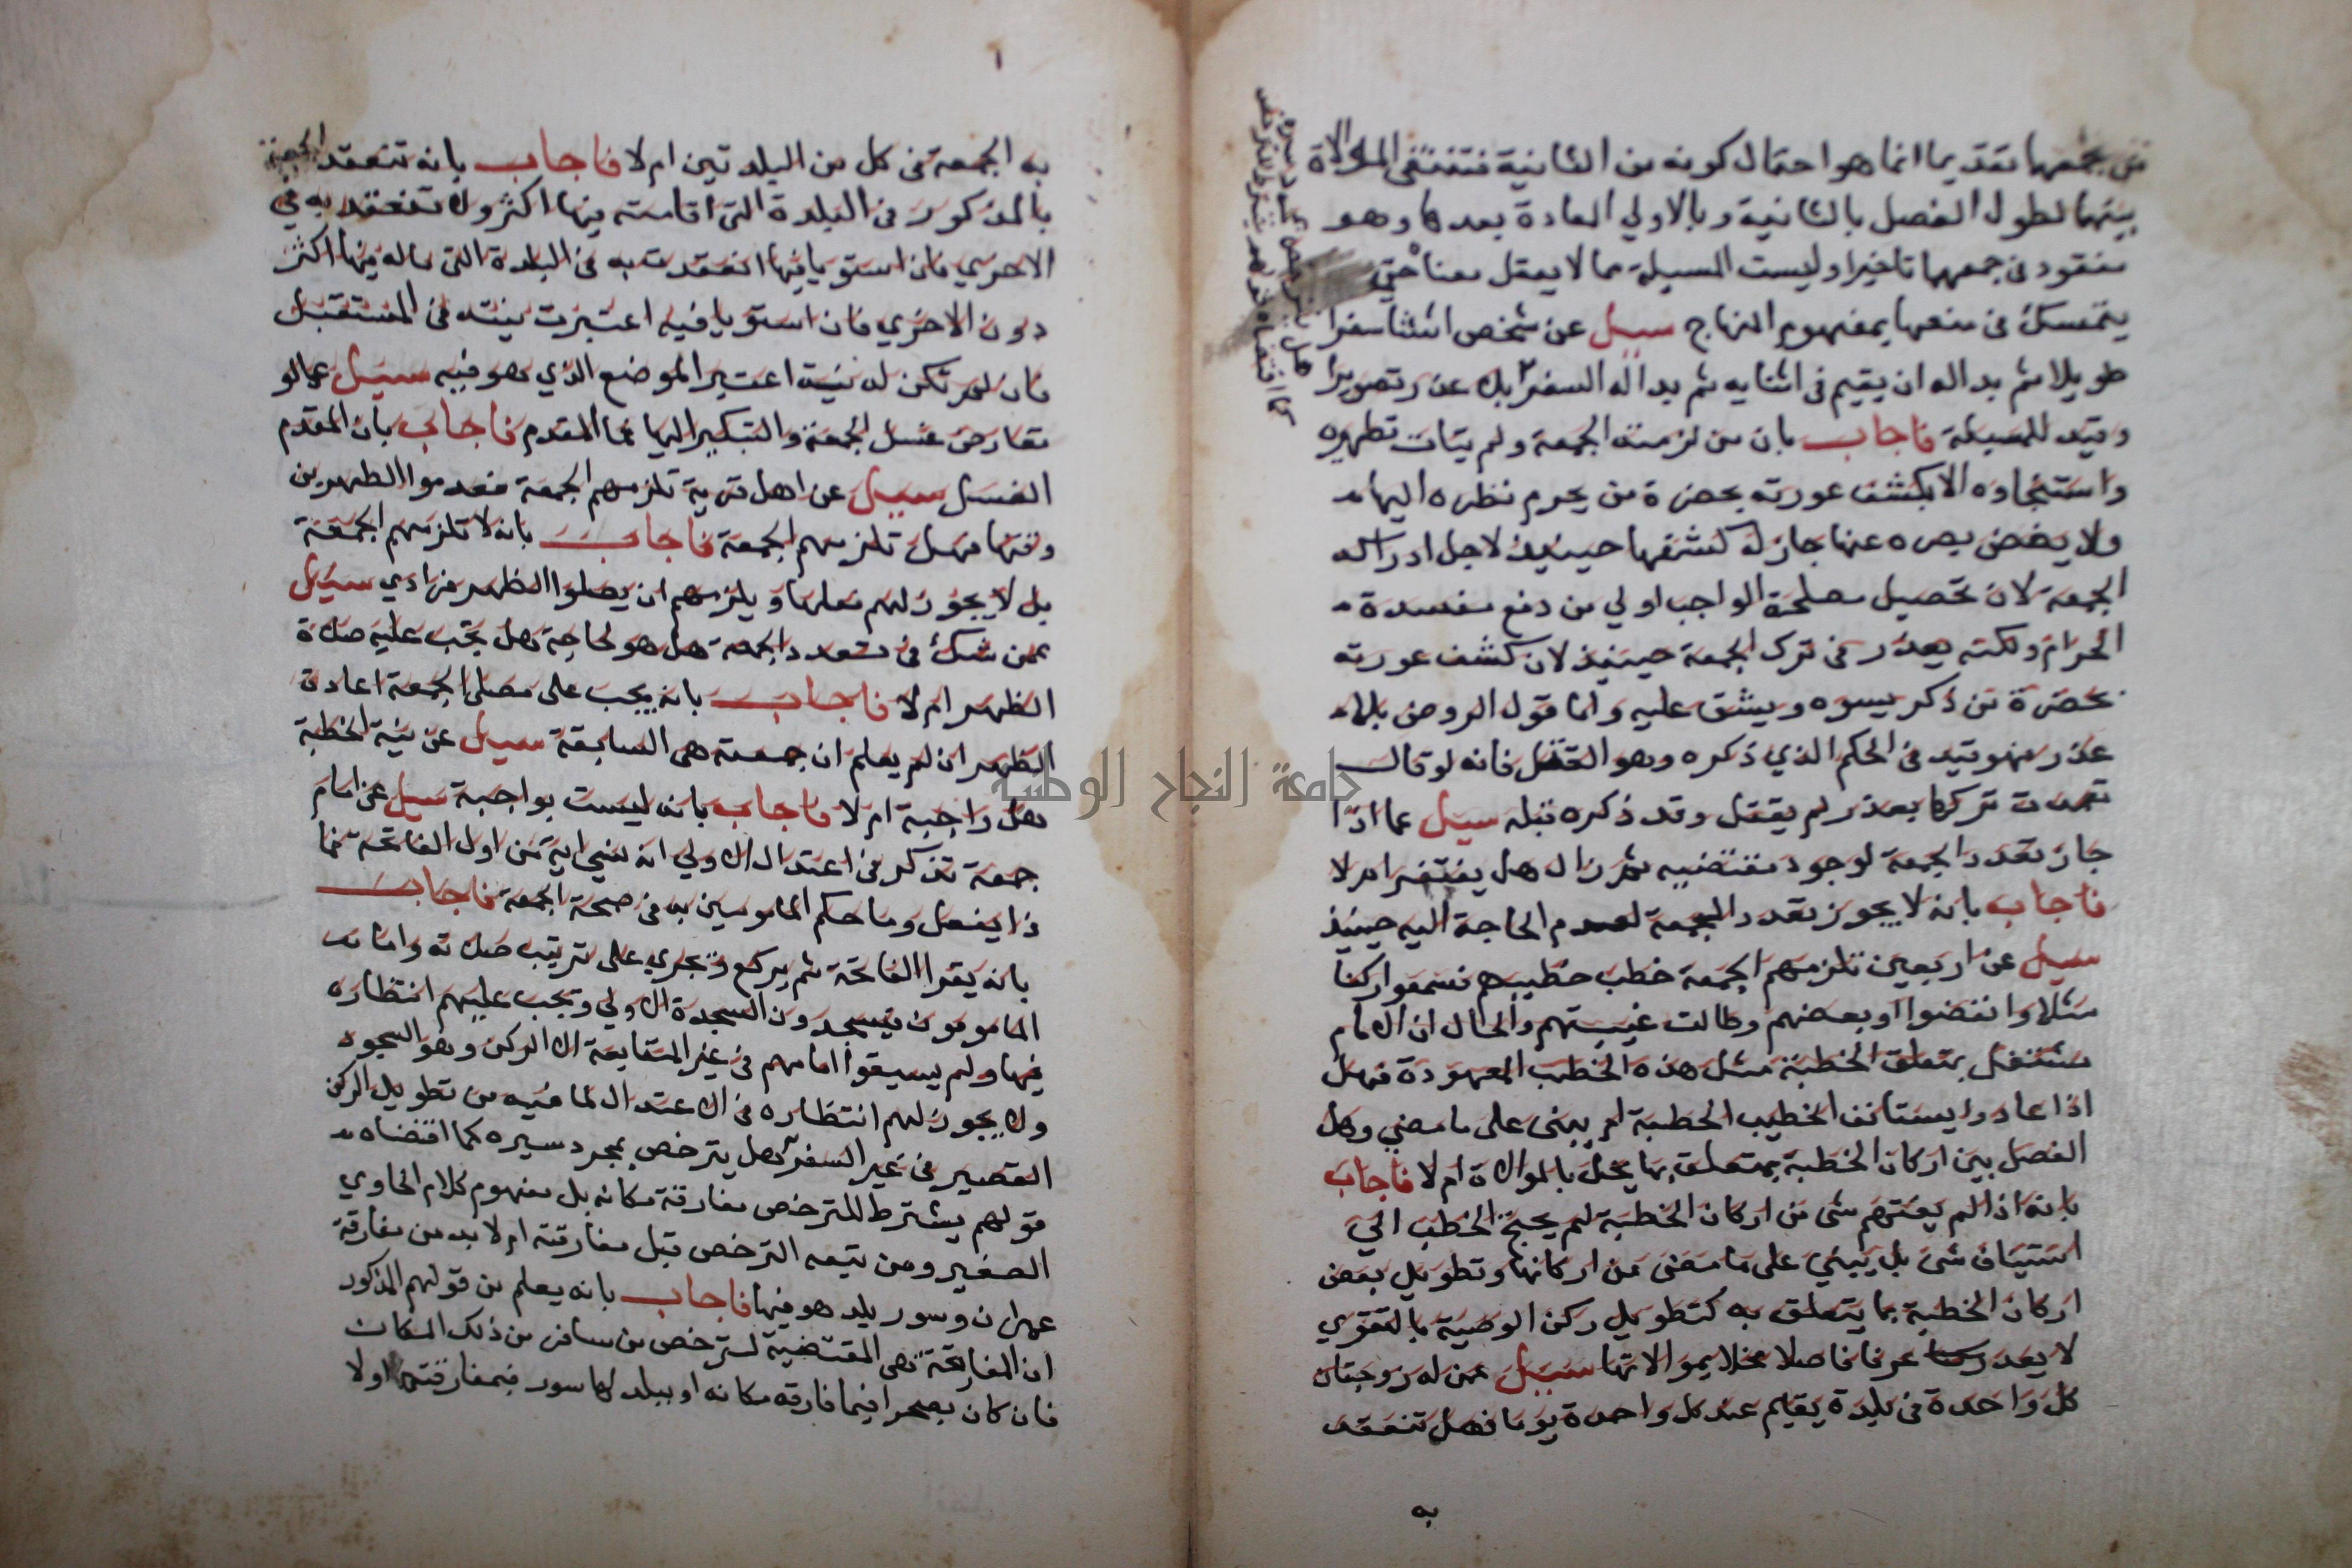 في جمعها تقديما انما هو احتمال كونه من الثانية فتنتفي الموالاة
بينهما لطول الفصل بالثانية وبالاولي المعادة بعدها وهو
مفقود في جمعها تاخيرا وليست المسيلة مما لا يعقل معناه حتي
يتمسك في منعها بمفهوم المنهاج سيل عن شخص انشا سفرا
طويلا ثم بداله ان يقيم في اثنايه ثم بداله السفر بلا عذر
وقيد للمسيلة فاجاب بان من لزمته الجمعة ولم يتات تطهيره
واستنجاوه الا بكشف عورته بحضرة من يحرم نظره اليها
ولا يغض بصره عنها جاز له كشفها حينيذ لاجل ادراكه
الجمعة لان تحصيل مصلحة الواجب اولي من دفع مفسدة
الحرام ولكنه يعذر في ترك الجمعة حينيذ لان كشف عورته
بحضرة من ذكر يسوه ويشق عليه واما قول الروض بلا
عذر فهو قيد في الحكم الذي ذكره وهو القتل فانه لو قال
تعمدت تركها بعذر لم يقتل وقد ذكره قبله سيل عما اذا
جاز تعدد الجمعة لوجود مقتضيه ثم زال هل يغتفر ام لا
فاجاب بانه لا يجوز تعدد الجمعة لعدم الحاجة اليه حينيذ
سيل عن اربعين تلزمهم الجمعة خطب خطيبهم فسمعوا ركنا
مثلا وانفضوا او بعضهم وطالت غيبتهم والحال ان الامام
مشتغل بمتعلق الخطبة مثل هذه الخطب المعهودة فهل
اذا عادوا يستانف الخطيب الخطبة ام يبني على ما مضي وهل
الفصل بين اركان الخطبة بمتعلق بها يخل بالموالاة ام لا فاجاب
بانه اذا لم يفتهم شي من اركان الخطبة لم يحتج الخطيب الي
استيناف شي بل يبني على ما مضى من اركانها وتطويل بعض
اركان الخطبة بما يتعلق به كتطويل ركن الوصية بالتقوي
لا يعد عرفا فاصلا مخلا بموالاتها سيل عمن له زوجتان
كل واحدة في بلدة يقيم عند كل واحدة يوما فهل تنعقد
به
جامعة النجاح الوطنية
١
به الجمعة في كل من البلدتين ام لا فاجاب بانه تنعقد الجمعة
بالمذكور في البلدة التي اقامته فيها اكثر ولا تنعقد به في
الاخري فان استويا فيها انعقدت به في البلدة التي ماله فيها اكثر
دون الاخري فان استويا فيه اعتبرت نيته في المستقبل
فان لم تكن له نية اعتبر الموضع الذي هو فيه سيل عما لو
تعارض غسل الجمعة والتبكير اليها فما المقدم فاجاب بان المقدم
الغسل سيل عن اهل قرية تلزمهم الجمعة فعدموا الطهورين
وقتها فهل تلزمهم الجمعة فاجاب بانه لا تلزمهم الجمعة
بل لا يجوز لهم فعلها ويلزمهم ان يصلوا الظهر فرادي سيل
عمن شك في تعدد الجمعة هل هو لحاجة هل تجب عليه صلاة
الظهر ام لا فاجاب بانه يجب على مصلي الجمعة اعادة
الظهر ان لم يعلم ان جمعته هي السابقة سيل عن نية الخطبة
هل واجبة ام لا فاجاب بانه ليست بواجبة سيل عن امام
جمعة تذكر في اعتدال الاولي انه نسي اية من اول الفاتحة فما
ذا يفعل وما حكم المامومين به في صحة الجمعة فاجاب
بانه يقرا الفاتحة ثم يركع ويجري على ترتيب صلاته واما
المامومون فيسجدون السجدة الاولي وتجب عليهم انتظاره
فيها ولم يسبقوا امامهم في غير المتابعة الا الركن وهو السجود
ولا يجوز لهم انتظاره في الاعتدال لما فيه من تطويل الركن
القصير في غير السفر هل يترخص بمجرد سيره كما اقتضاه
قولهم يشترط للمترخص مفارقة مكانه بل مفهوم كلام الحاوي
الصغير ومن تبعه الترخص قبل مفارقته ام لا بد من مفارقة
عمران وسور بلد هو فيها فاجاب بانه يعلم من قولهم المذكور
ان المفارقة هي المقتضية لترخص من سافر من ذلك المكان
فان كان بصحرا فبمفارقه مكانه او ببلد لها سور فبمفارقته اولا